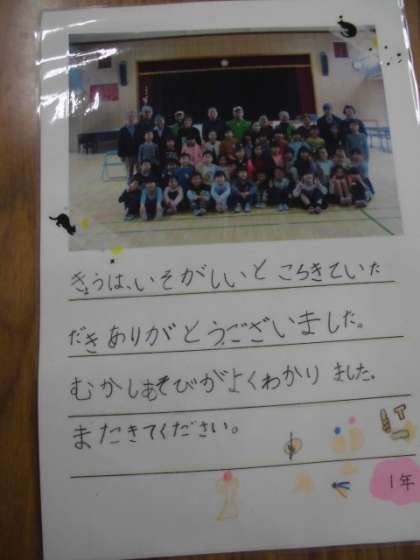 きょうは、いそがしいと こらきていた
だきありがとうございました。
むかしあそびがよくわかり ました。
またきてください。
1年